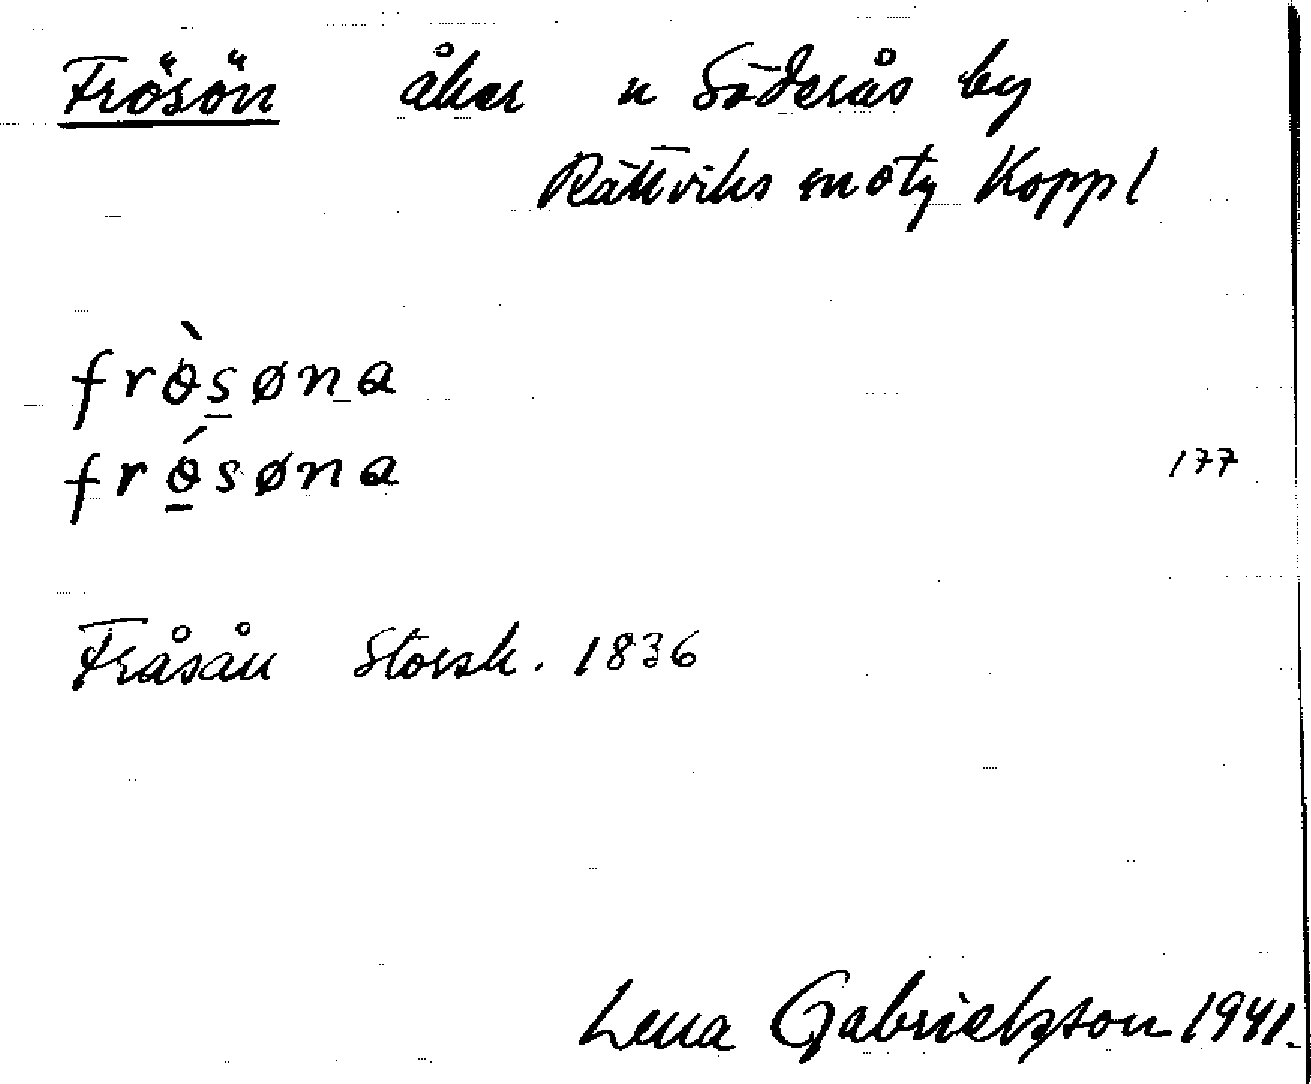 Frösön åker n Söderås by
Rättviks snötg Koppl
frɵ̀s̲øna
frɵ̲́søna
177
Fråsån Storsk. 1836
Lena Gabrielsson 1941.